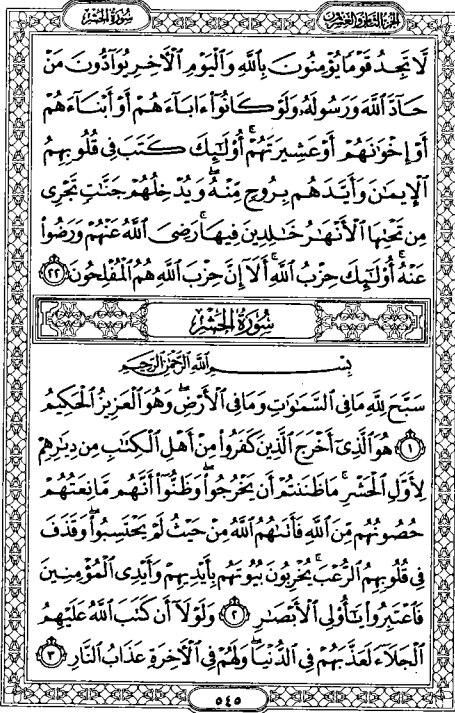 الجزء الثامن والعشرون
سورة الحشر
لَّا تَجِدُ قَوْمًا يُؤْمِنُونَ بِٱللَّهِ وَٱلْيَوْمِ ٱلْأَخِرِ يُوَآدُّونَ مَنْ
حَآدَّ ٱللَّهَ وَرَسُولَهُۥ وَلَوْ كَانُوٓا۟ ءَابَآءَهُمْ أَوْ أَبْنَآءَهُمْ
أَوْ إِخْوَٰنَهُمْ أَوْ عَشِيرَتَهُمْ ۚ أُو۟لَٰٓئِكَ كَتَبَ فِى قُلُوبِهِمُ
ٱلْإِيمَٰنَ وَأَيَّدَهُم بِرُوحٍ مِّنْهُ ۖ وَيُدْخِلُهُمْ جَنَّٰتٍ تَجْرِى
مِن تَحْتِهَا ٱلْأَنْهَٰرُ خَٰلِدِينَ فِيهَا ۚ رَضِىَ ٱللَّهُ عَنْهُمْ وَرَضُوا۟
عَنْهُ ۚ أُو۟لَٰٓئِكَ حِزْبُ ٱللَّهِ ۚ أَلَآ إِنَّ حِزْبَ ٱللَّهِ هُمُ ٱلْمُفْلِحُونَ ٢٢
سورة الحشر
بِسْمِ ٱللَّهِ ٱلرَّحْمَٰنِ ٱلرَّحِيمِ
سَبَّحَ لِلَّهِ مَا فِى ٱلسَّمَٰوَٰتِ وَمَا فِى ٱلْأَرْضِ ۖ وَهُوَ ٱلْعَزِيزُ ٱلْحَكِيمُ
١ هُوَ ٱلَّذِىٓ أَخْرَجَ ٱلَّذِينَ كَفَرُوا۟ مِنْ أَهْلِ ٱلْكِتَٰبِ مِن دِيَٰرِهِمْ
لِأَوَّلِ ٱلْحَشْرِ ۚ مَا ظَنَنتُمْ أَن يَخْرُجُوا۟ ۖ وَظَنُّوٓا۟ أَنَّهُم مَّانِعَتُهُمْ
حُصُونُهُم مِّنَ ٱللَّهِ فَأَتَىٰهُمُ ٱللَّهُ مِنْ حَيْثُ لَمْ يَحْتَسِبُوا۟ ۖ وَقَذَفَ
فِى قُلُوبِهِمُ ٱلرُّعْبَ ۚ يُخْرِبُونَ بُيُوتَهُم بِأَيْدِيهِمْ وَأَيْدِى ٱلْمُؤْمِنِينَ
فَٱعْتَبِرُوا۟ يَٰٓأُو۟لِى ٱلْأَبْصَٰرِ ٢ وَلَوْلَآ أَن كَتَبَ ٱللَّهُ عَلَيْهِمُ
ٱلْجَلَآءَ لَعَذَّبَهُمْ فِى ٱلدُّنْيَا ۖ وَلَهُمْ فِى ٱلْأَخِرَةِ عَذَابُ ٱلنَّارِ ٣
٥٤٥